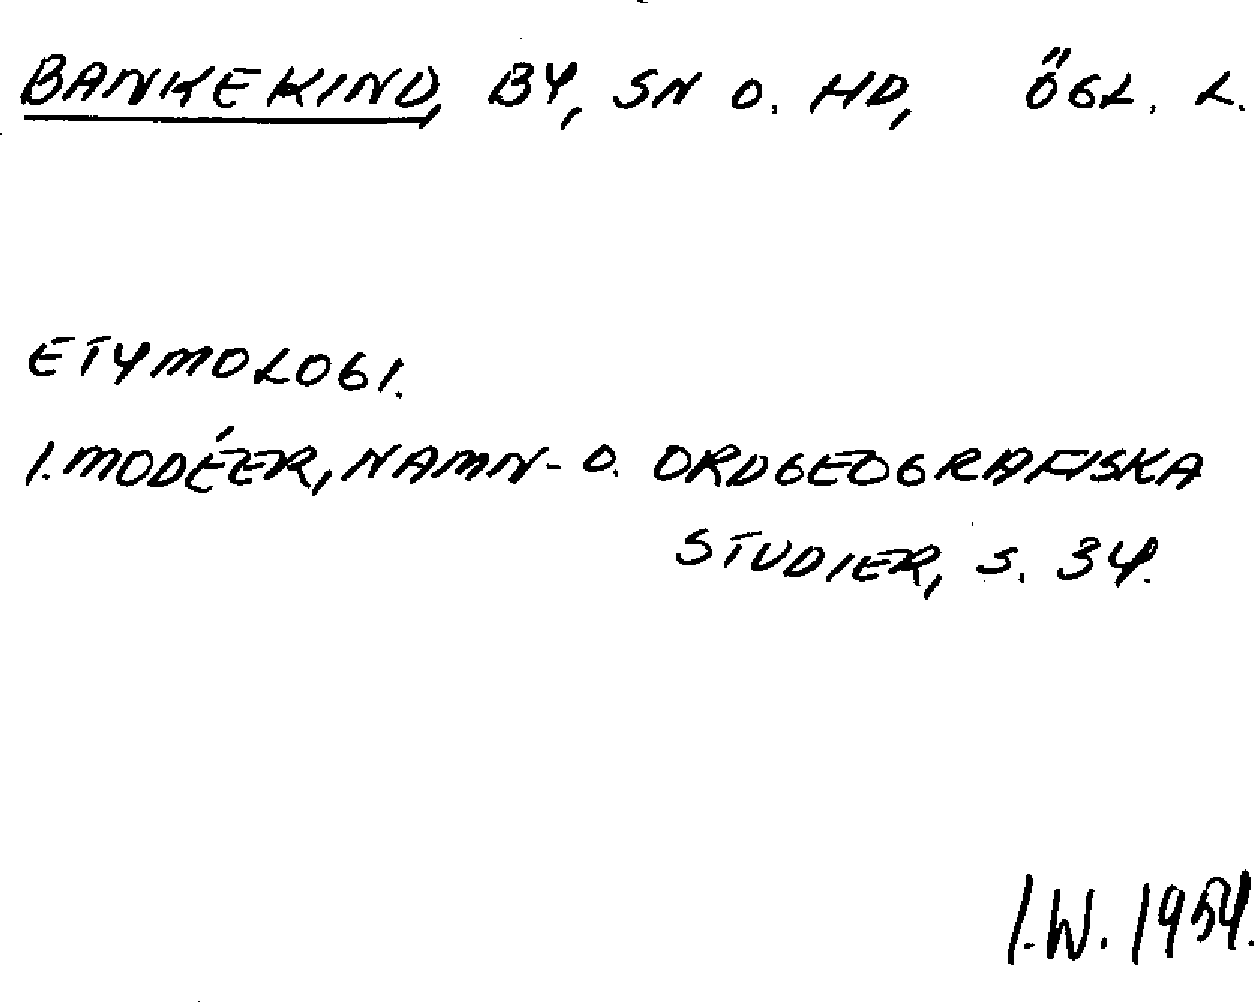 BANKEKIND, BY, SN O. HD, ÖGL. L.
ETYMOLOGI.
I. MODÉER, NAMN- O. ORDGEOGRAFISKA
STUDIER, S. 34.
I.W. 1954.